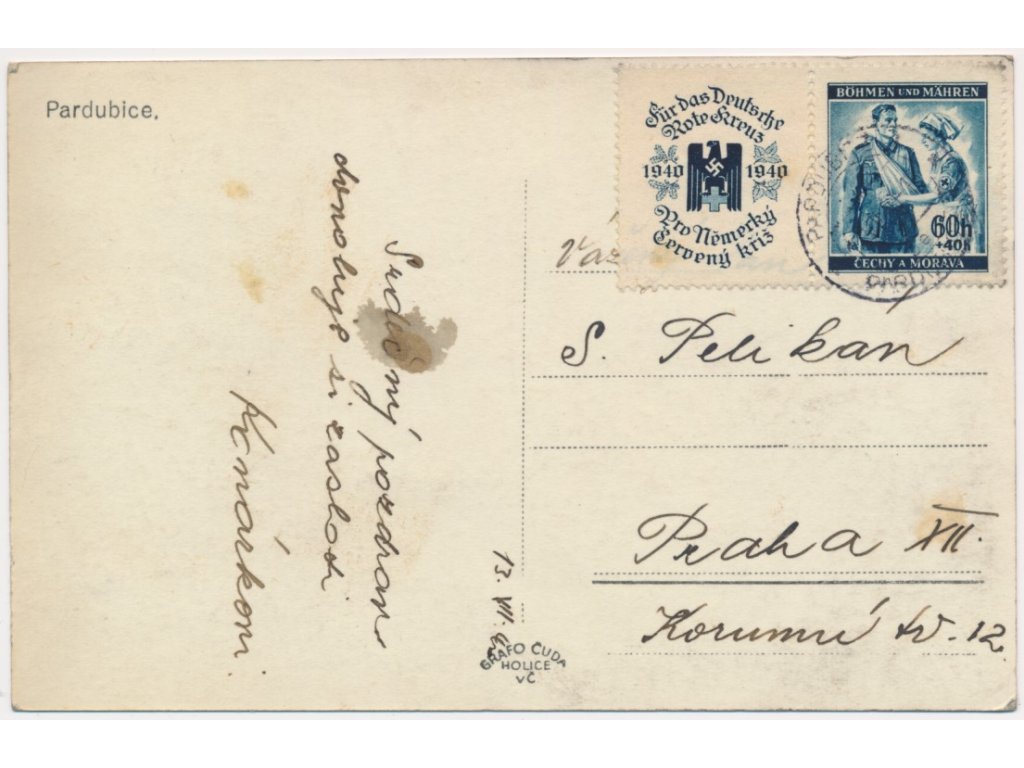 Pardubice,
Für das Deutsche
Rote Kreuz
1940 1940
Pro Německý
Červený kříž
BÖHMEN UND MÄHREN
60h
+40h
ČECHY A MORAVA
PARDUB
S. Pelikan
Praha XII.
Korunní tř. 12.
Srdečný pozdrav
dovoluje si zaslati
13. VII.
GRAFO ČUDA
HOLICE
VČ